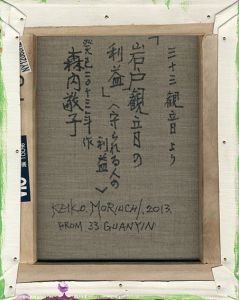 三十三観音より
「岩戸観音の
利益」〈守られる人の
利益〉
癸巳二〇十三年作
森内敬子
KEIKO. MORIUCHI. 2013.
FROM 33 GUANYIN